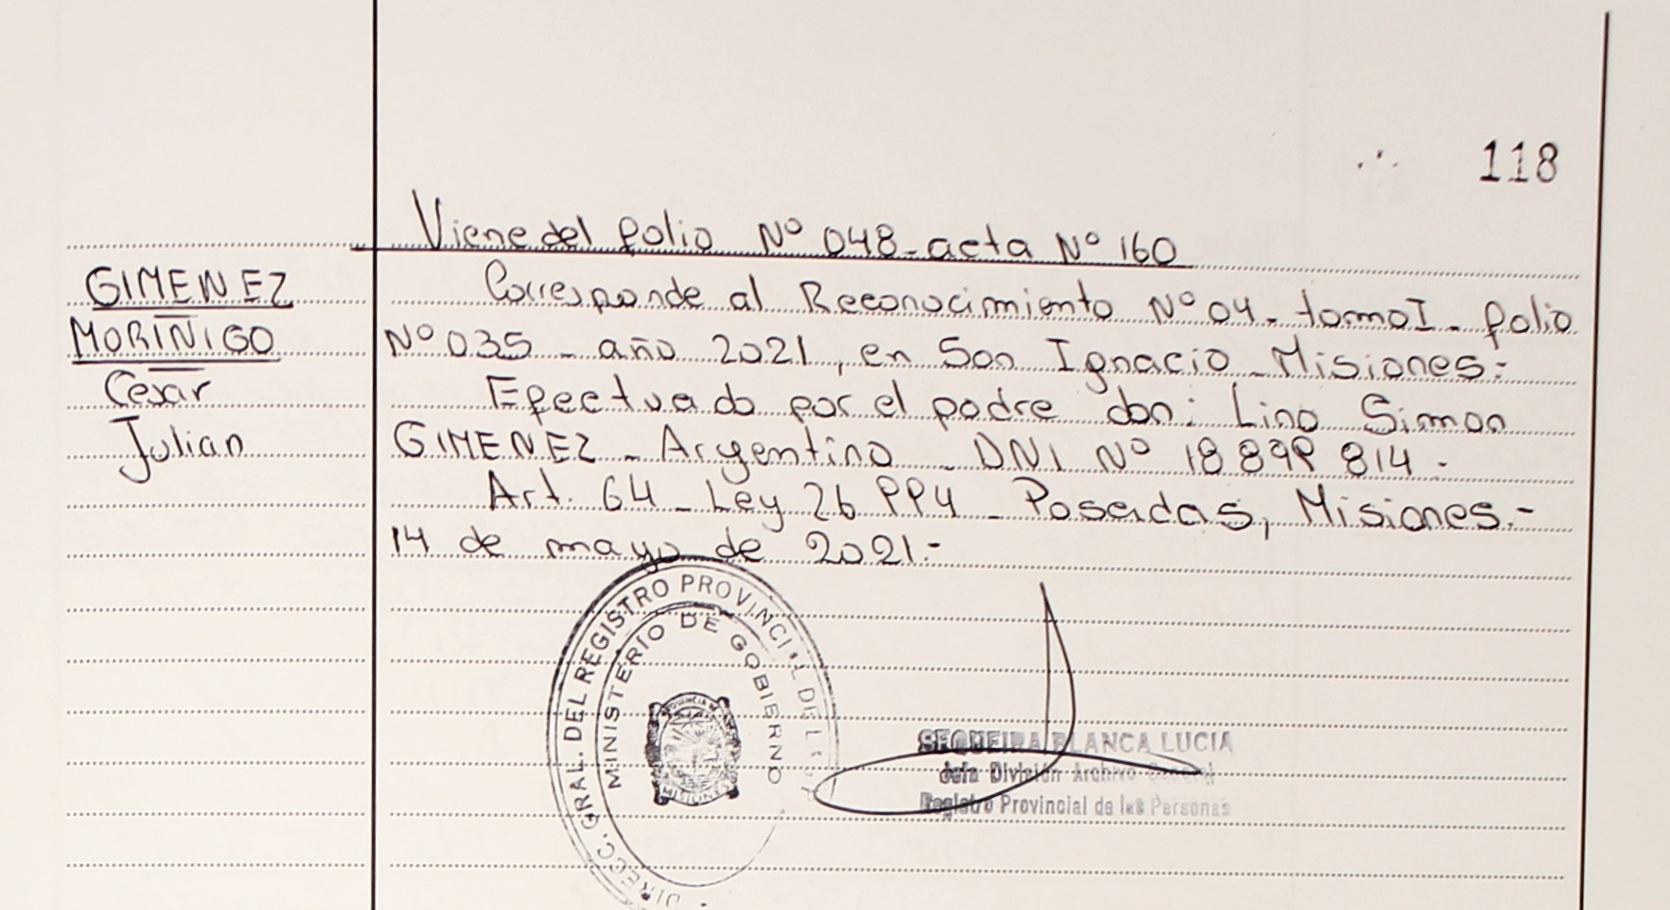 118
Viene del folio Nº 048-acta Nº 160
GIMENEZ
MORIÑIGO
Cesar
Julian
Corresponde al Reconocimiento Nº 04- tomo I - folio
Nº 035 - año 2021, en San Ignacio - Misiones:
Efectuado por el padre don: Lino Simon
GIMENEZ - Argentino - DNI Nº 18 899 814.
Art. 64 - Ley 26 994 - Posadas, Misiones.-
14 de mayo de 2021.-
DIRECC. GRAL. DEL REGISTRO PROVINCIAL DE LAS
MINISTERIO DE GOBIERNO
PROVINCIA DE
MISIONES
SEQUEIRA BLANCA LUCIA
Jefa División Archivo General
Registro Provincial de las Personas